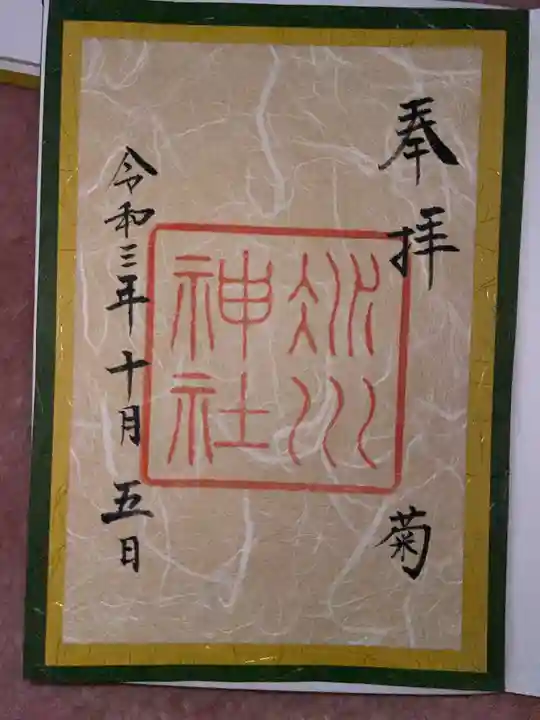 奉拝 菊
氷川
神社
令和三年十月五日